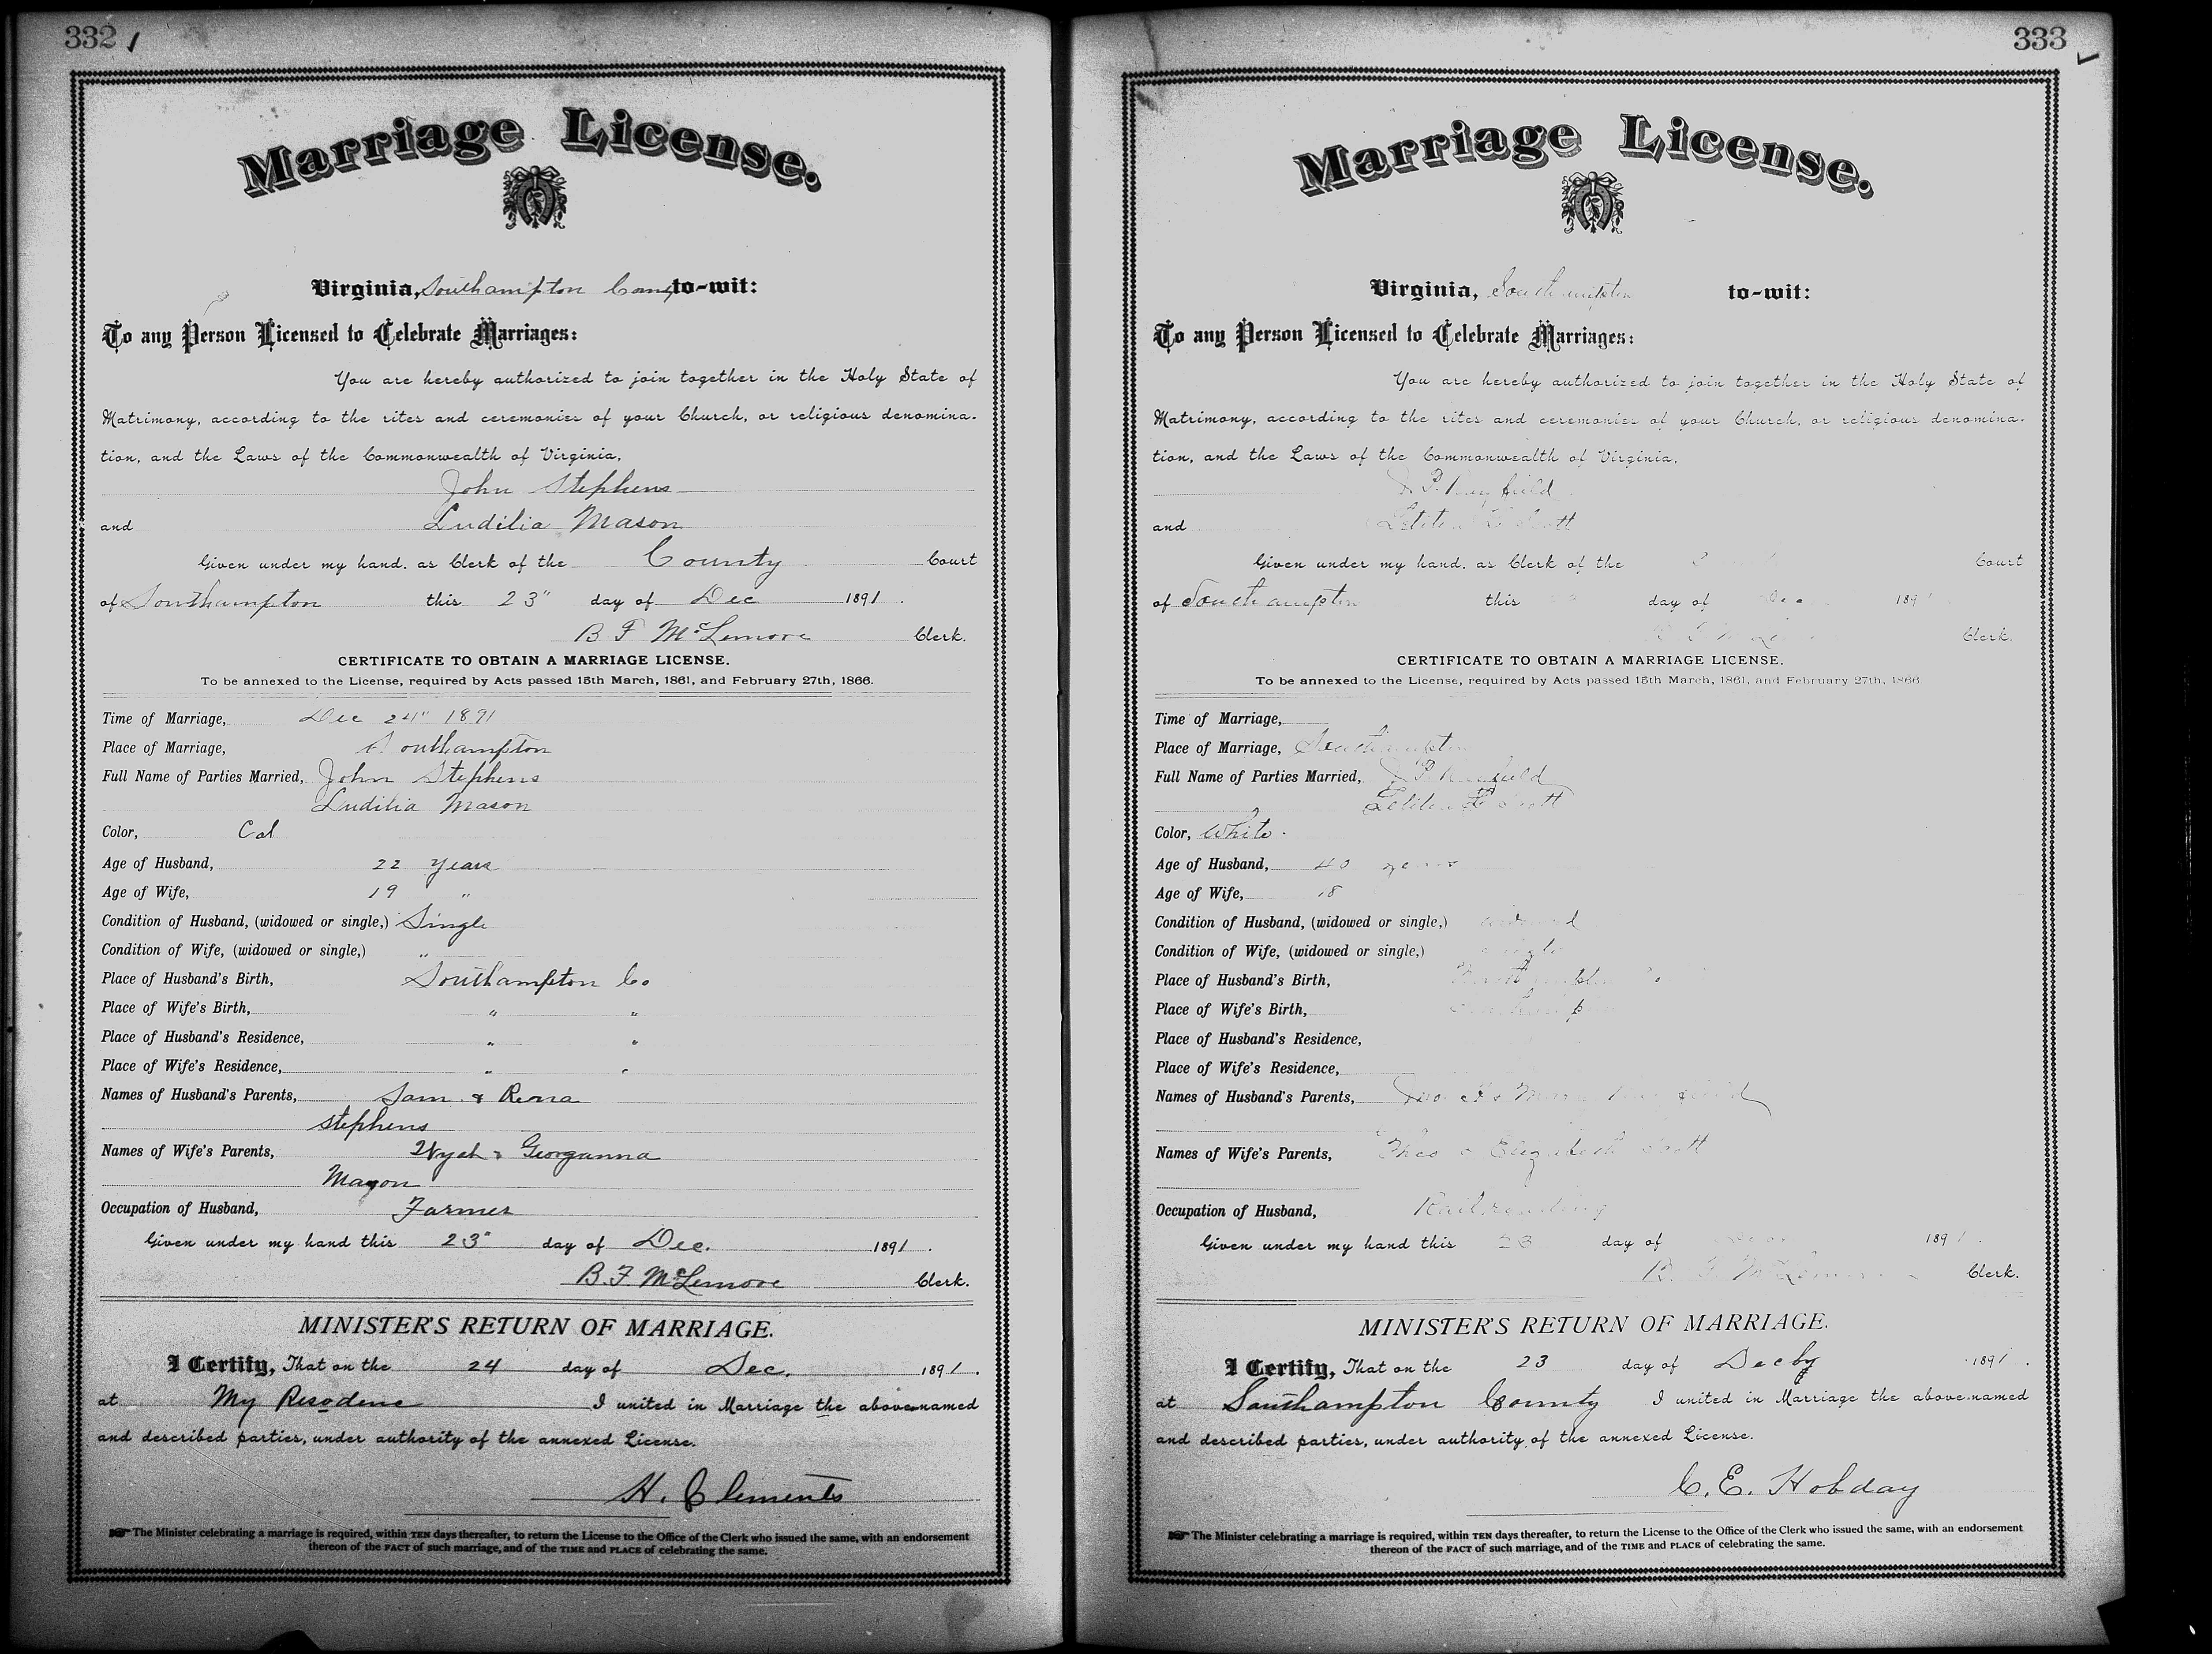 332
Marriage License.
Virginia, Southampton County to-wit:
To any Person Licensed to Celebrate Marriages:
You are hereby authorized to join together in the Holy State of
Matrimony, according to the rites and ceremonies of your Church, or religious denomina-
tion, and the Laws of the Commonwealth of Virginia,
John Stephens
and Ludilia Mason
Given under my hand, as Clerk of the County Court
of Southampton this 23" day of Dec 1891.
B F McLemore Clerk.
CERTIFICATE TO OBTAIN A MARRIAGE LICENSE.
To be annexed to the License, required by Acts passed 15th March, 1861, and February 27th, 1866.
Time of Marriage, Dec 24" 1891
Place of Marriage, Southampton
Full Name of Parties Married, John Stephens
Ludilia Mason
Color, Col
Age of Husband, 22 years
Age of Wife, 19 "
Condition of Husband, (widowed or single,) Single
Condition of Wife, (widowed or single,) "
Place of Husband's Birth, Southampton Co
Place of Wife's Birth, " "
Place of Husband's Residence, " "
Place of Wife's Residence, " "
Names of Husband's Parents, Sam & Rena
Stephens
Names of Wife's Parents, & Georganna
Mason
Occupation of Husband, Farmer
Given under my hand this 23" day of Dec. 1891.
B. F. McLemore Clerk.
MINISTER'S RETURN OF MARRIAGE.
I Certify, That on the 24 day of Dec. 1891.
at My I united in Marriage the above-named
and described parties, under authority of the annexed License.
H. Clements
The Minister celebrating a marriage is required, within TEN days thereafter, to return the License to the Office of the Clerk who issued the same, with an endorsement
thereon of the FACT of such marriage, and of the TIME and PLACE of celebrating the same.
333
Marriage License.
Virginia, Southampton to-wit:
To any Person Licensed to Celebrate Marriages:
You are hereby authorized to join together in the Holy State of
Matrimony, according to the rites and ceremonies of your Church, or religious denomina-
tion, and the Laws of the Commonwealth of Virginia,
and Scott
Given under my hand, as Clerk of the Court
of Southampton this day of Dec 1891.
Clerk.
CERTIFICATE TO OBTAIN A MARRIAGE LICENSE.
To be annexed to the License, required by Acts passed 15th March, 1861, and February 27th, 1866
Time of Marriage,
Place of Marriage, Southampton
Full Name of Parties Married,
Scott
Color, White.
Age of Husband, 40 years
Age of Wife, 18
Condition of Husband, (widowed or single,) widowed
Condition of Wife, (widowed or single,) single
Place of Husband's Birth,
Place of Wife's Birth, Southampton
Place of Husband's Residence,
Place of Wife's Residence,
Names of Husband's Parents,
Names of Wife's Parents, Thos & Elizabeth Scott
Occupation of Husband, Railroading
Given under my hand this 23 day of 1891.
B. F McLemore Clerk.
MINISTER'S RETURN OF MARRIAGE.
I Certify, That on the 23 day of 1891.
at Southampton County I united in Marriage the above-named
and described parties, under authority of the annexed License.
C. E. Hobday
The Minister celebrating a marriage is required, within TEN days thereafter, to return the License to the Office of the Clerk who issued the same, with an endorsement
thereon of the FACT of such marriage, and of the TIME and PLACE of celebrating the same.